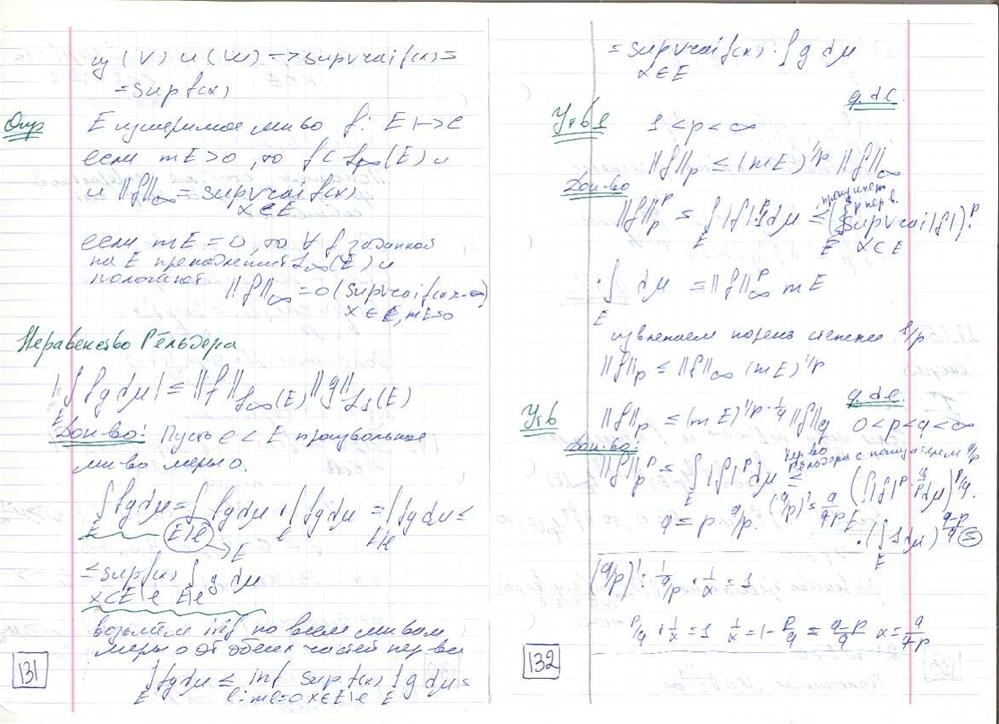 из (V) и (W) => supvrai f(x) =
= sup f(x)
Опр E измеримое мн-во f: E |-> C
если mE>0, то f ⊂ L∞(E) и
и ||f||∞ = supvrai f(x)
x∈E
если mE = 0, то ∀ f заданной
на E принадлежит L∞(E) и
полагают ||f||∞ = 0 (supvrai f(x)=-∞)
x∈E, mE=0
Неравенство Гёльдера
|∫ fg dμ| ≤ ||f||L∞(E) ||g||L1(E)
E
Док-во: Пусть e < E произвольное
мн-во меры 0.
∫ fg dμ = ∫ fg dμ + ∫ fg dμ = ∫ fg dμ ≤
E E\e e E\e
≤ sup f(x) ∫ g dμ
x⊂E\e E\e
возьмём inf по всем мн-вам
меры 0 от обеих частей нер-ва
∫ fg dμ ≤ inf sup f(x) ∫ g dμ =
E e: me=0 x∈E\e E
131
= supvrai f(x) · ∫ g dμ
x∈E
q.d.e.
Утв 1 1 < p < ∞
||f||p ≤ (mE)^1/p ||f||∞
Док-во
||f||p^p = ∫ |f|^p·1 dμ ≤ (supvrai |f|)^p ·
E x⊂E
· ∫ dμ = ||f||∞^p mE
E
извлечением корень степени 1/p
||f||p ≤ ||f||∞ (mE)^1/p
q.d.e.
Утв ||f||p ≤ (mE)^1/p - 1/q ||f||q 0<p<q<∞
Док-во:
||f||p^p = ∫ |f|^p dμ ≤ нер-во Гёльдера с показателем q/p (∫ |f|^p·q/p dμ)^p/q ·
E
q = p · q/p (q/p)' = q/q-p · (∫ 1 dμ)^q-p/q =
E
(q/p)': 1/q/p + 1/x = 1
p/q + 1/x = 1 1/x = 1 - p/q = q-p/q x = q/q-p
132